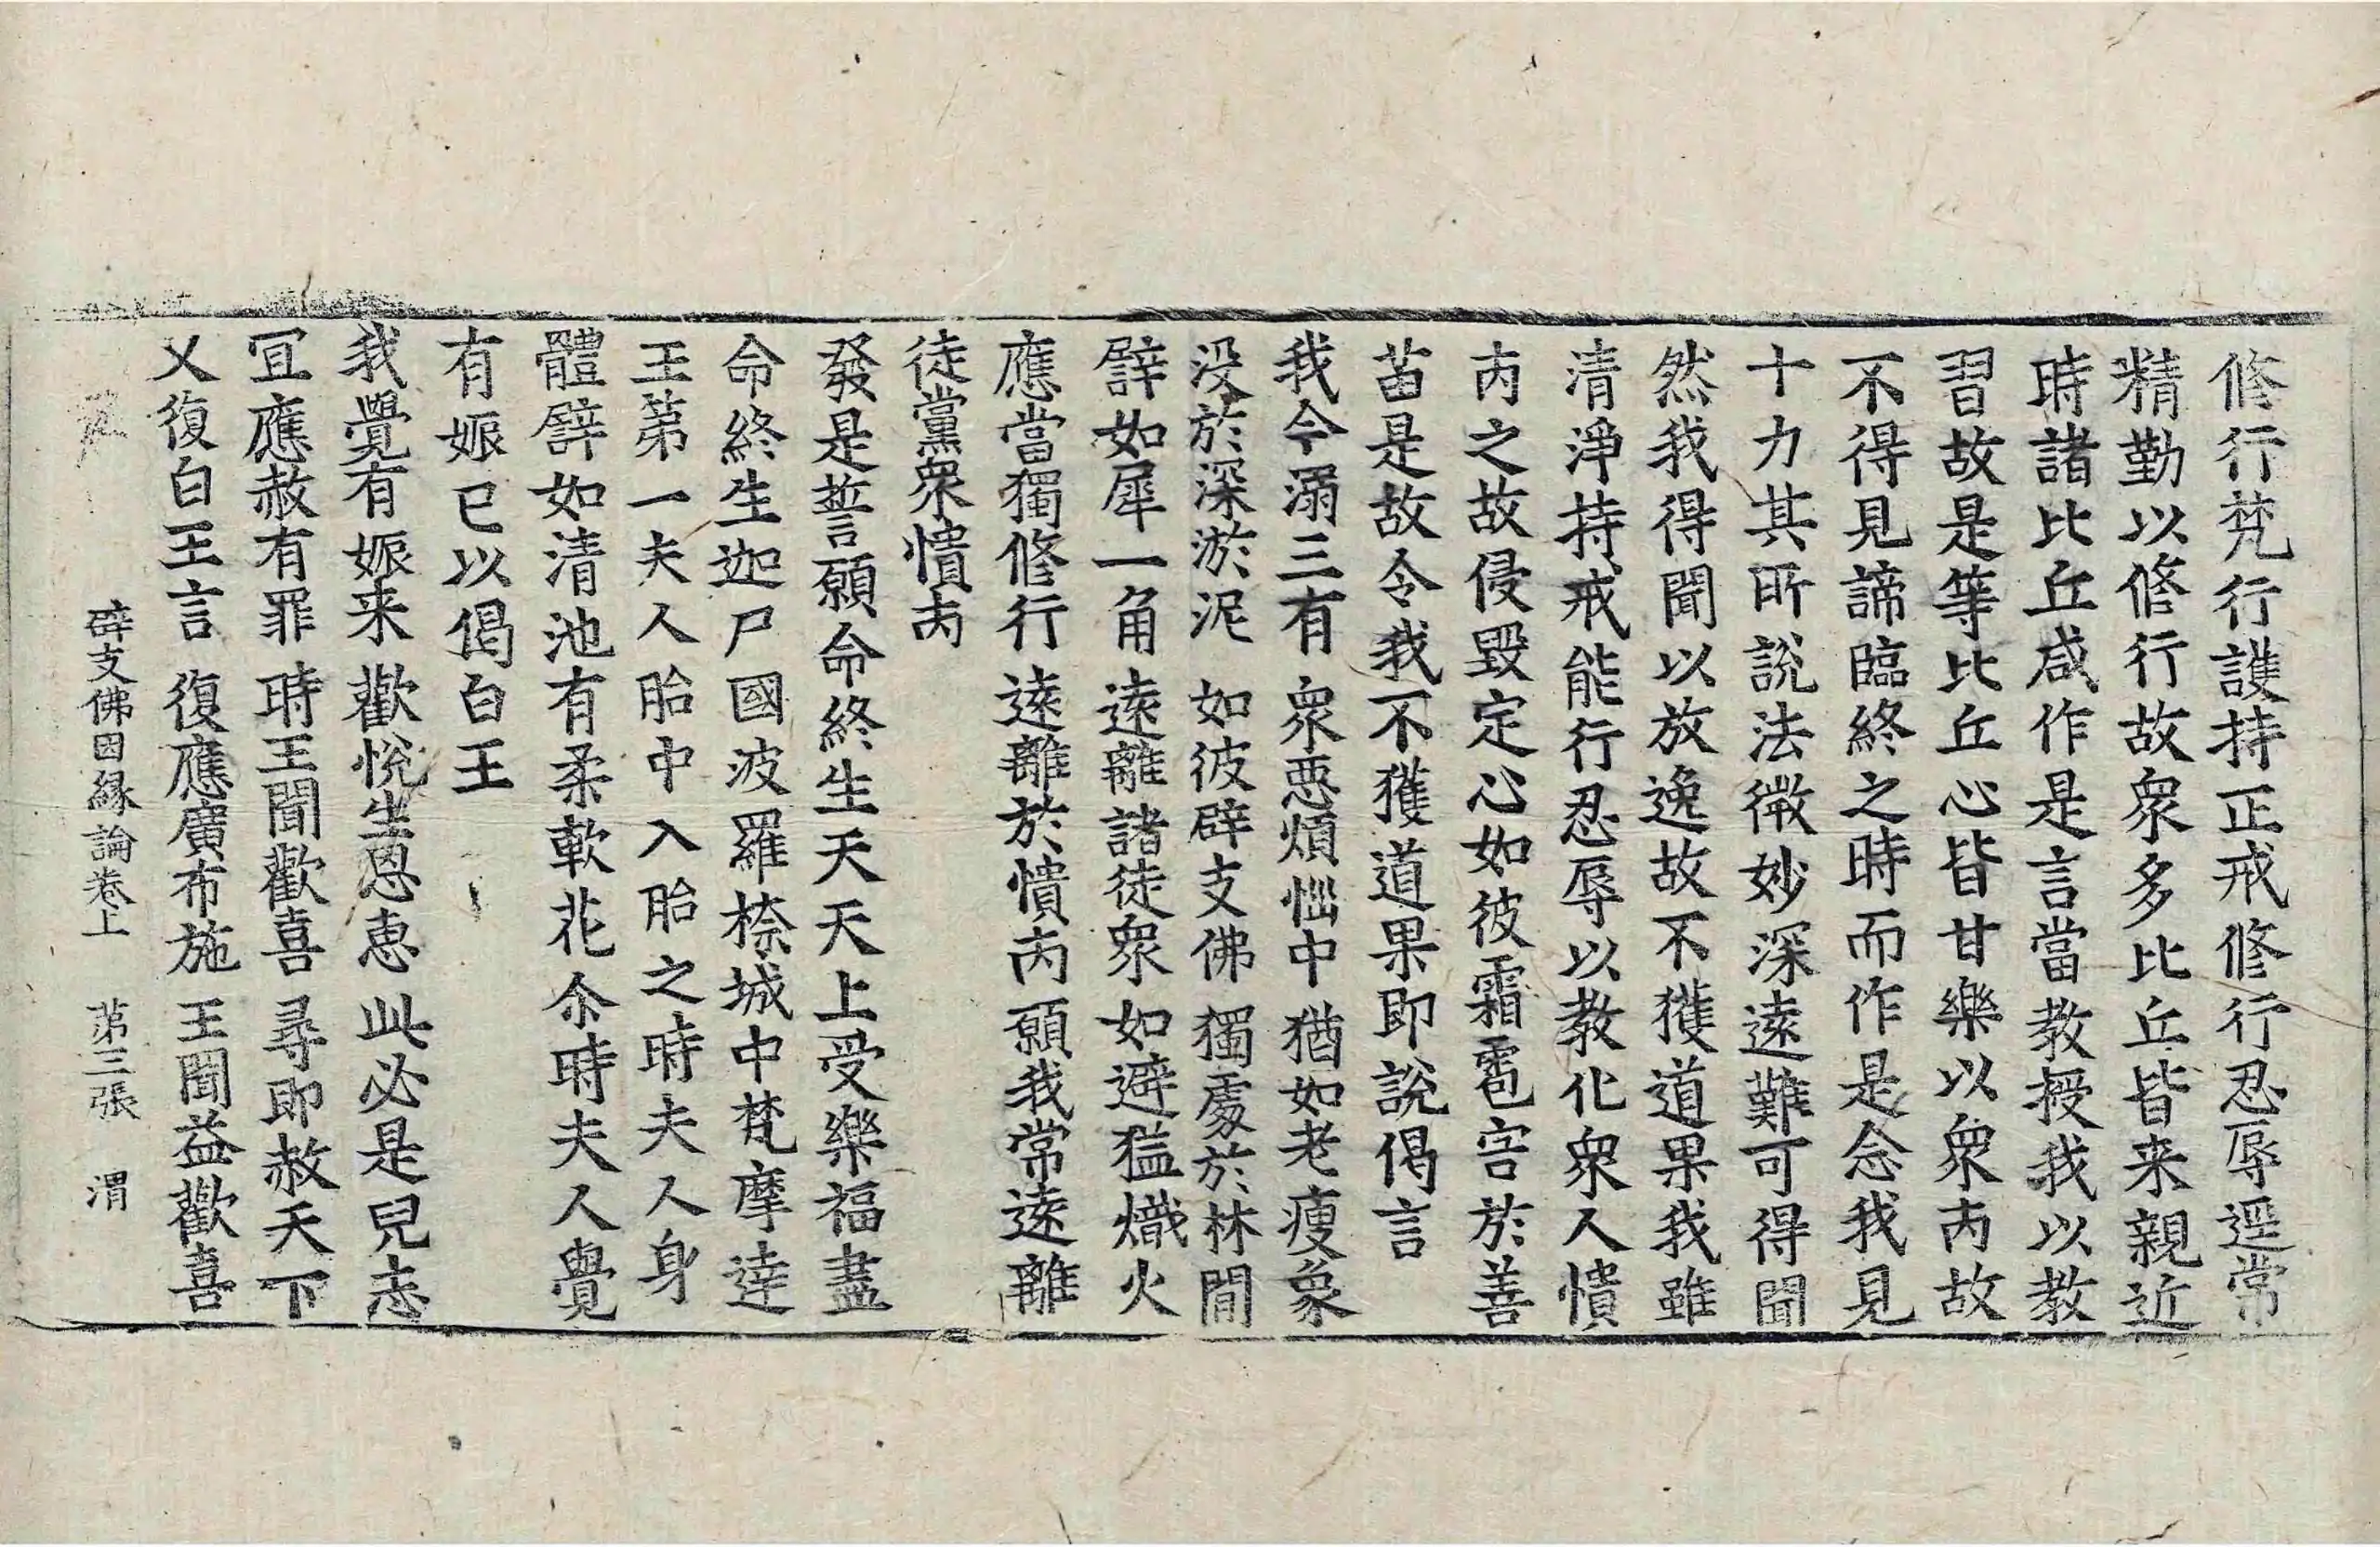 修行梵行護持正戒修行忍辱逕常
精勤以修行故衆多比丘皆来親近
時諸比丘咸作是言當教授我以教
習故是等比丘心皆甘樂以衆丙故
不得見諦臨終之時而作是念我見
十力其所說法微妙深遠難可得聞
然我得聞以放逸故不獲道果我雖
清淨持戒能行忍辱以教化衆人憒
丙之故侵毀定心如彼霜雹害於善
苗是故令我不獲道果即說偈言
我今溺三有 衆惡煩惱中 猶如老瘦象
没於深淤泥 如彼辟支佛 獨處於林間
譬如犀一角 遠離諸徒衆 如避猛熾火
應當獨修行 遠離於憒丙 願我常遠離
徒黨衆憒丙
發是誓願命終生天天上受樂福盡
命終生迦尸國波羅㮈城中梵摩達
王第一夫人胎中入胎之時夫人身
體譬如清池有柔軟花尒時夫人覺
有娠已以偈白王
我覺有娠来 歡悅生恩惠 此必是兒志
冝應赦有罪 時王聞歡喜 尋即赦天下
又復白王言 復應廣布施 王聞益歡喜
辟支佛因緣論卷上 苐三張 渭